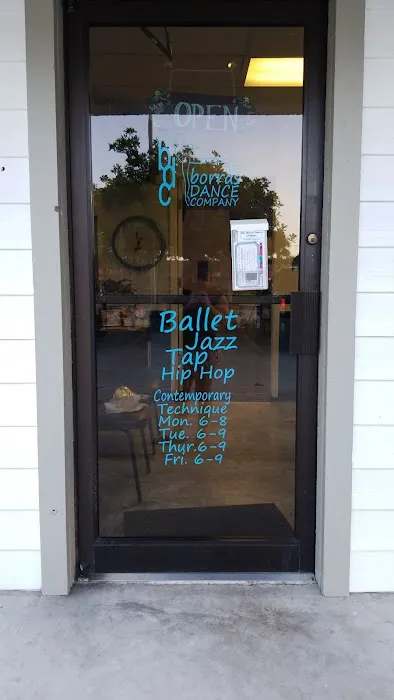 OPEN
bdc
borras
DANCE
COMPANY
Ballet
Jazz
Tap
Hip Hop
Contemporary
Technique
Mon. 6-8
Tue. 6-9
Thur. 6-9
Fri. 6-9